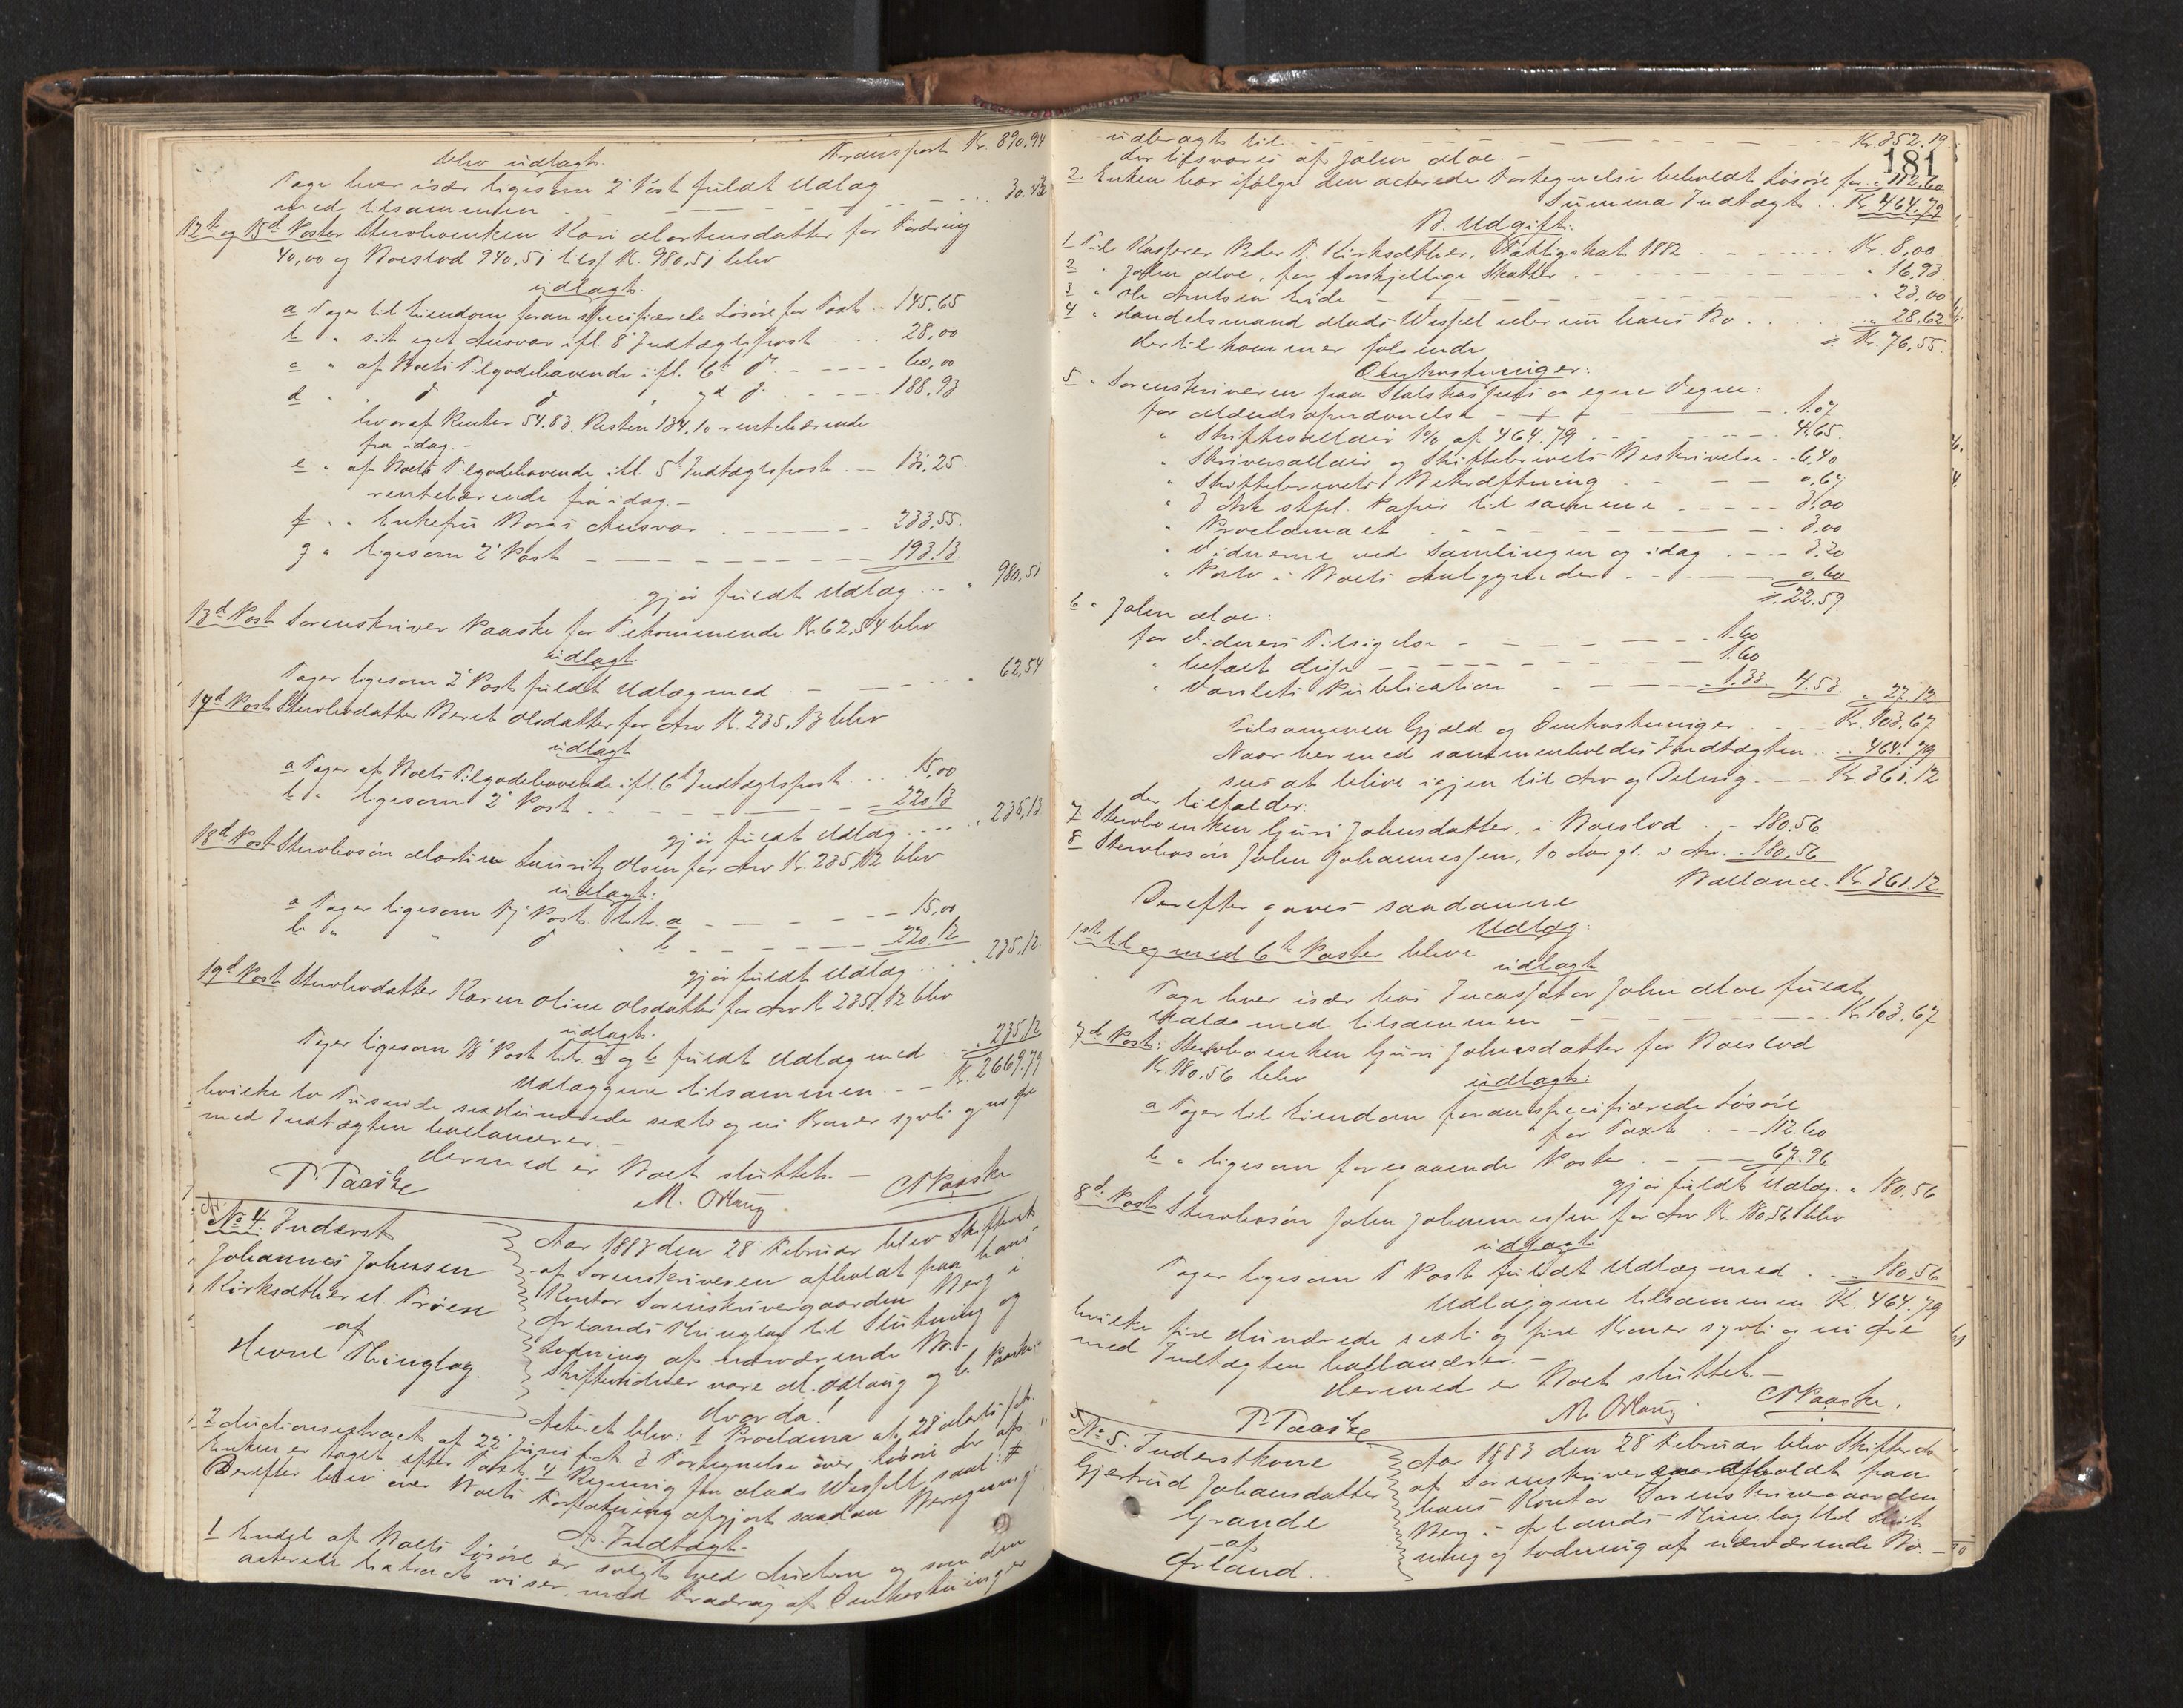 Transport Kr. 890.94
blev udlagt.
Tage hver især ligesom 2d Post fuldt Udlæg
med tilsammen - - - 30.42
12te og 15d Poster Sterboenken Kari Mortensdatter for Fordring
40,00 og Boeslod 940.51 tils. Kr. 980.51 blev
udlagt.
a Tager til Eiendom foran specificerede Løsøre for Taxt - 145.65
b " sit eget Ansvar ifl. 8d Indtægtspost - 28,00
c " af Boets Tilgodehavende ifl. 6te d - 60,00
d " d d " d - 188.93
hvoraf Renter 54.83. Resten 134.10 rentebærende
fra idag. -
e " af Boets Tilgodehavende ifl. 5te Indtægtspost. - 131.25
rentebærende fra idag. -
f " Enkefru Ansvar - 233.55.
g " ligesom 2d Post - 193.13
gjør fuldt Udlæg - " 980.51
13d Post Sorenskriver Paaske for Tilkommende Kr. 62,54 blev
udlagt.
Tager ligesom 2d Post fuldt Udlæg med - " 62,54
17d Post Sterbodatter Beret Olsdatter for Arv Kr. 235.13 blev
udlagt
a Tager af Boets Tilgodehavende ifl. 6te Indtægtspost - 15,00
b " ligesom 2d Post - 220.13
gjør fuldt Udlæg - " 235,13
18d Post Sterbosøn Martin Lauritz Olsen for Arv Kr. 235,12 blev
udlagt.
a Tager ligesom 17d Post Litr. a - 15,00
b " " d " b - 220.12
gjør fuldt Udlæg - " 235.12
19d Post Sterbodatter Karen Oline Olsdatter for Arv Kr 235.12 blev
udlagt.
Tager ligesom 18d Post litr. a og b fuldt Udlæg med - " 235.12
Udlæggene tilsammen - Kr. 2669.79
hvilke to Tusinde sexhundrede sexti og ni Kroner sytti og ni Øre
med Indtægten ballancerer. -
Hermed er Boet sluttet. -
P. Paaske
M. Odlaug.
C Paaske
No 4. Inderst
Johannes Johnsen
Kirksæther
af
Hevne Thinglag.
Aar 1883 den 28 Februar blev Skifteret
af Sorenskriveren afholdt paa hans
Kontor Sorenskrivergaarden Berg i
Ørlands Thinglag til Slutning og
Lodning af nærværende Bo. -
Skiftevidner vare M. Odlaug og P. Paaske.
Hvorda!
Acteret blev: 1 Proclama af 28 Marts f. A.
2 Auctionsextract af 22 Juni f. A. 3 Fortegnelse over Løsøre der af
Enken er taget efter Taxt. 4 Regning fra Mads Wessel, samt
Derefter blev over Boets Forfatning afgjort saadan Beregning
A. Indtægt. -
1 Endel af Boets Løsøre er solgt ved Auction og som den
acterede Extract viser, med Fradrag af Omkostninger
181
udbragt til - Kr. 352.19
der tilsvares af John Moe. -
2. Enken har ifølge den acterede Fortegnelse beholdt Løsøre for " 112.60
Summa Indtægt - Kr. 464.79
B. Udgift.
1 Til Kasserer Peder T. Kirksæther, Fattigskat 1882 - Kr. 8,00
2 " John Moe, for forskjellige Skatter - " 16.93
3 " Ole Andersen Eide - " 23,00
4 " Handelsmand Mads Wessel eller nu hans Bo - " 28.62
Kr. 76,55.
dertil kommer følgende
Omkostninger:
5 " Sorenskriveren paa Statskassens og egne Vegne:
for - 1.07
" Skiftesallair 1% af 464.79 - 4.65.
" Skriversallair og Skiftebrevets Beskrivelse - 6,40
" Skiftebrevets Bekræftning - 0,67
" 3 Ark stpl. Papir til samme - 3,00
" Proclamaet - 3,00
" Vidnerne ved Samlingen og idag - 3.20
" Porto i Boets Anliggender - 0,60
22.59.
6 " John Moe:
for Vidners Tilsigelse - 1.60
" befaret disse - 1.60
" Varslets Publication - 1.33 4.53. " 27,12
Tilsammen Gjæld og Omkostninger - Kr. 103,67
Naar hermed sammenholdes Indtægten - " 464.79
sees at blive igjen til Arv og Deling - Kr. 361.12
der tilfalder:
7 Sterboenken Guri Johnsdatter, i Boeslod - 180.56
8 Sterbosøn John Johannessen, 10 Aar gl. i Arv - 180,56
Ballance. Kr. 361.12
Derefter gaves saadanne
Udlæg.
1ste til og med 6te Poster bleve
udlagt
Tage hver især hos Incassator John Moe fuldt
Udlæg med tilsammen - Kr. 103.67
7d Post: Sterboenken Guri Johnsdatter for Boeslod
Kr. 180.56 blev
udlagt:
a Tager til Eiendom foranspecificerede Løsøre
for Taxt - 112.60
b " ligesom foregaaende Poster - 67.96
gjør fuldt Udlæg. " 180.56
8d Post Sterbosøn John Johannessen for Arv Kr. 180.56 blev
udlagt
Tager ligesom 1 Post fuldt Udlæg med - " 180.56
Udlæggene tilsammen Kr. 464.79
hvilke fire Hundrede sexti og fire Kroner sytti og ni Øre
med Indtægten ballancerer. -
Hermed er Boet sluttet. -
P. Paaske
M. Odlaug
C Paaske.
No 5. Inderstkone
Gjertrud Johansdatter
Grande
af
Ørland.
Aar 1883 den 28 Februar blev Skifteret
af Sorenskriveren afholdt paa
hans Kontor Sorenskrivergaarden
Berg i Ørlands Thinglag til Slut
ning og Lodning af nærværende Bo. -